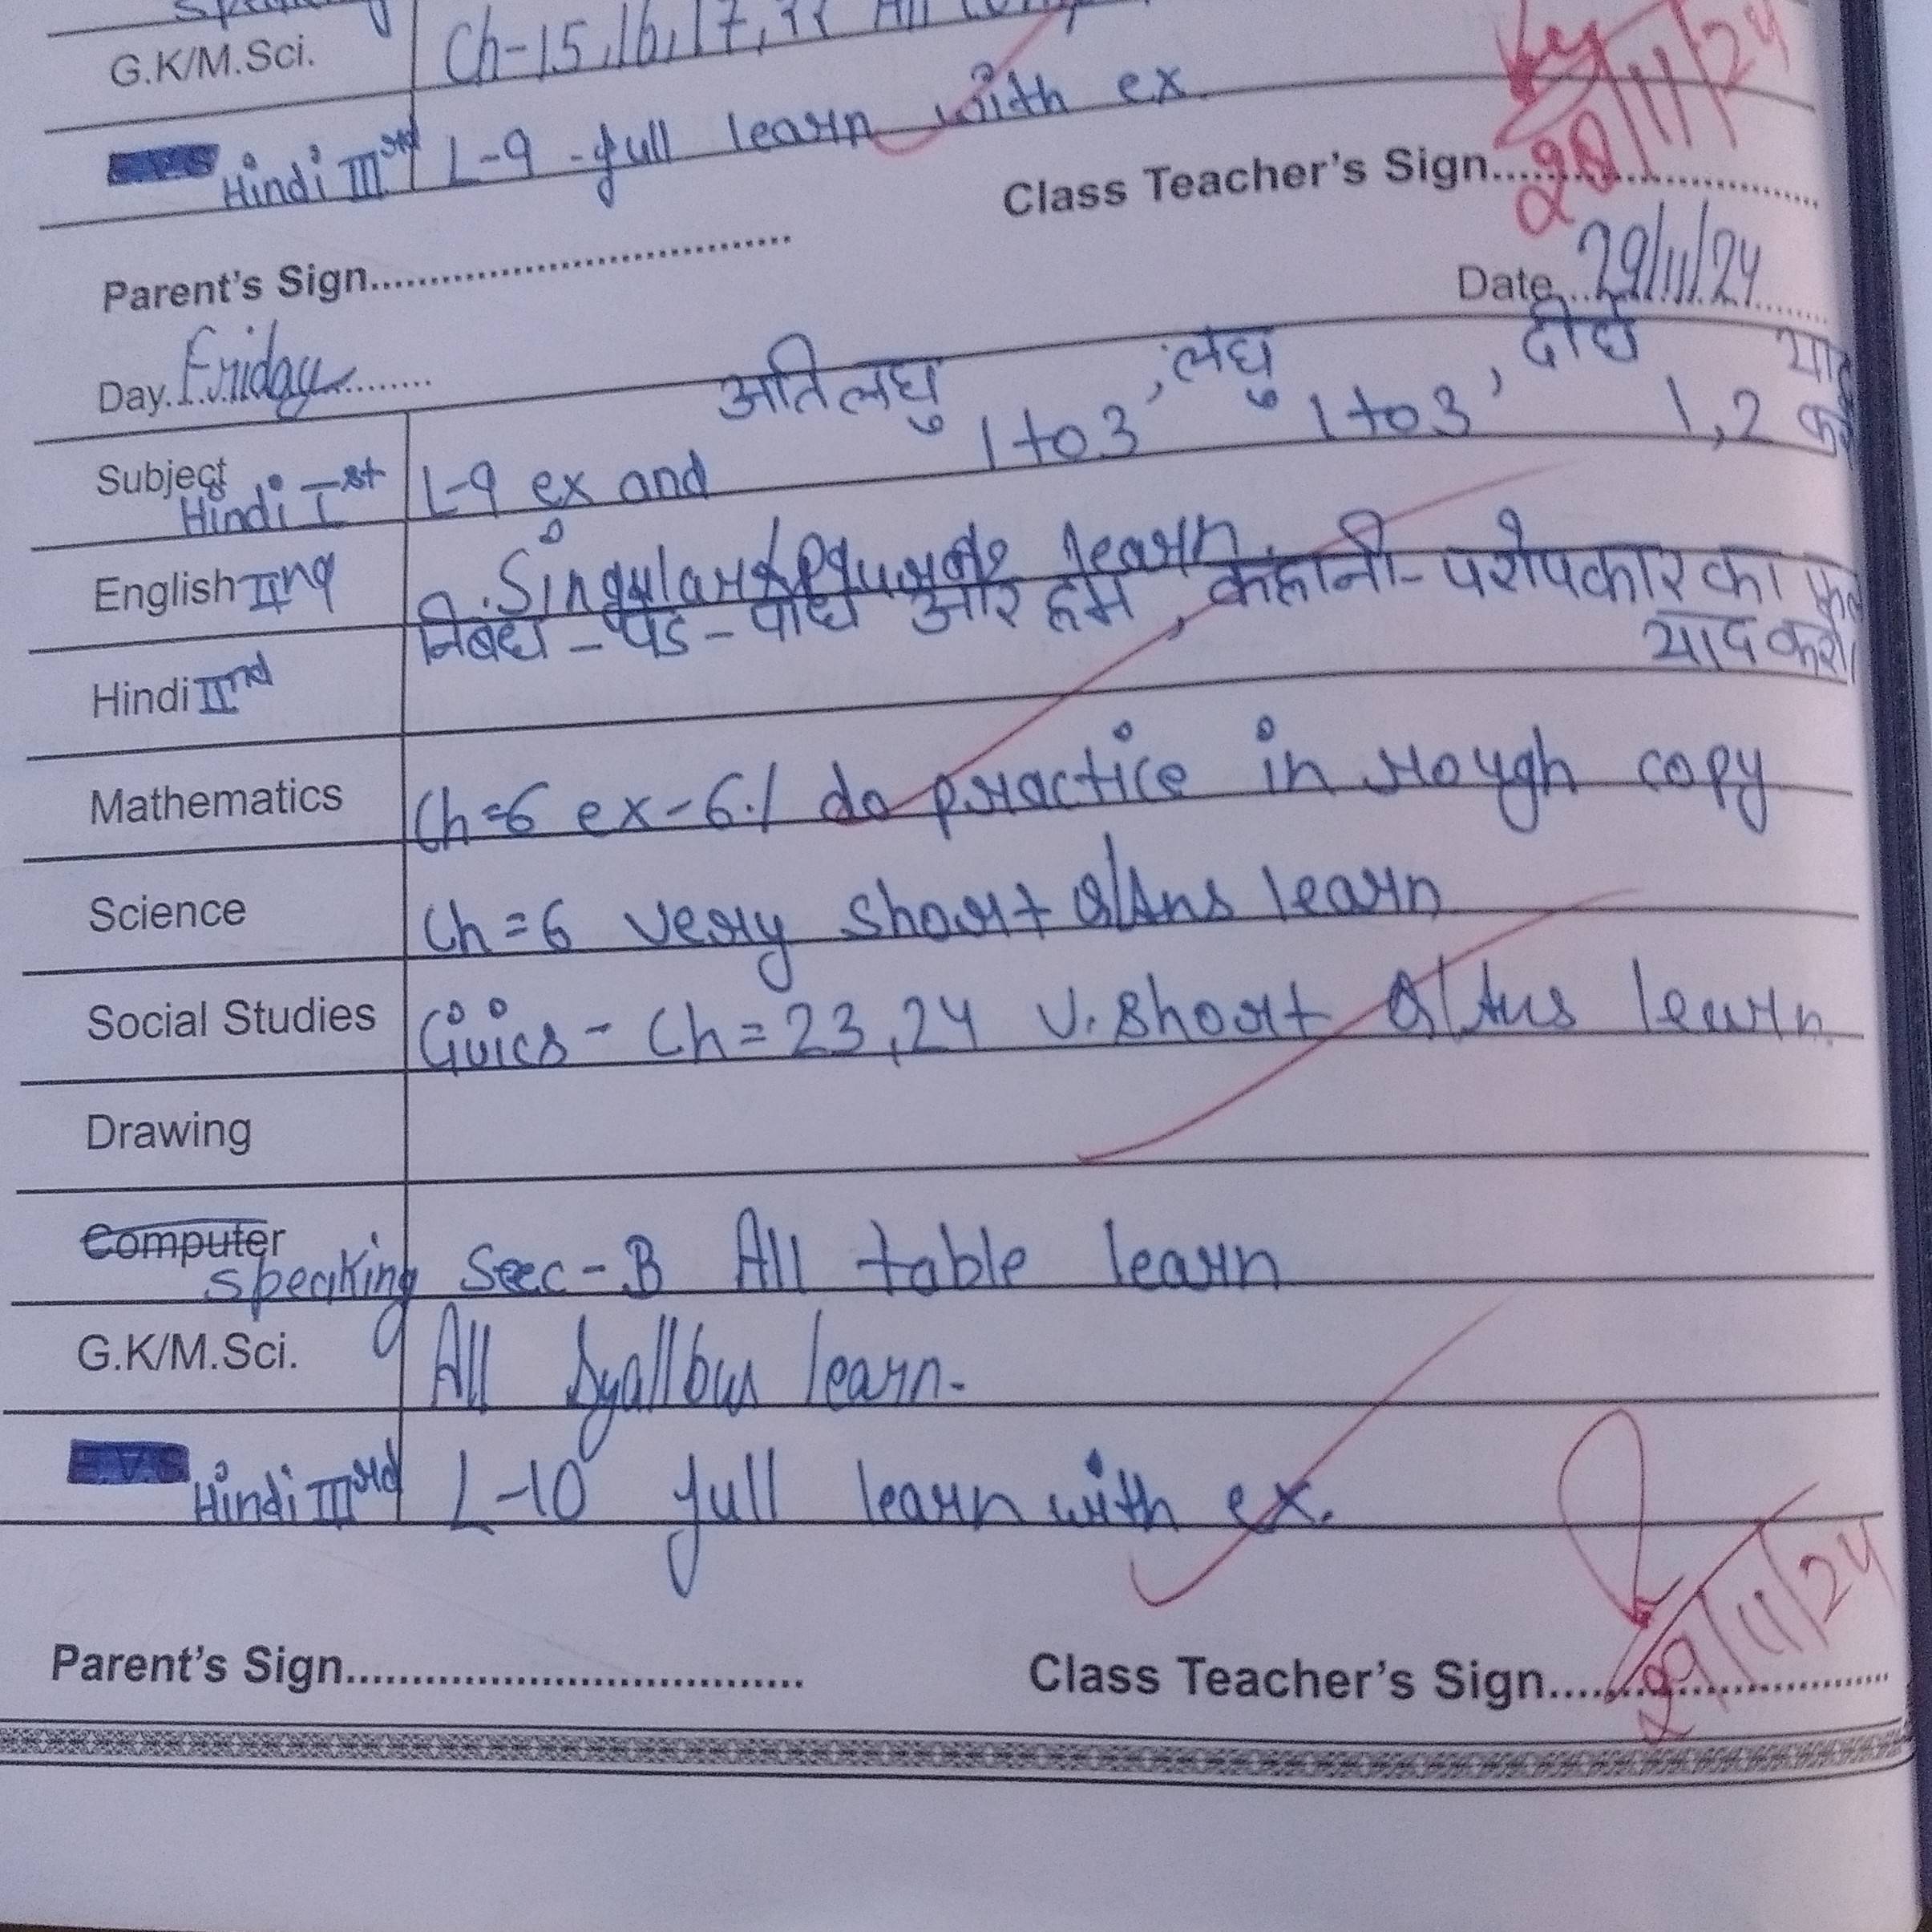 G.K/M.Sci. Ch-15,16,17, All
Hindi IIIrd L-9 -full learn with ex.
Class Teacher's Sign.................... 28/11/24
Parent's Sign....................................
Date 29/11/24
Day. Friday
अतिलघु , लघु , दीर्घ याद
Subject Hindi Ist L-9 ex and 1 to 3 1 to 3 1,2
English IInd Singular & learn.
निबंध - पेड़ - पौधे और हम , कहानी - परोपकार का
Hindi IInd याद करो।
Mathematics Ch=6 ex-6.1 do practice in rough copy
Science Ch=6 very short Q/Ans learn
Social Studies Civics - Ch=23,24 V.short Q/Ans learn.
Drawing
Computer
Speaking Sec-B All table learn
G.K/M.Sci. All Syallbus learn.
Hindi IIIrd L-10 full learn with ex.
Parent's Sign.................................... Class Teacher's Sign.................... 29/11/24